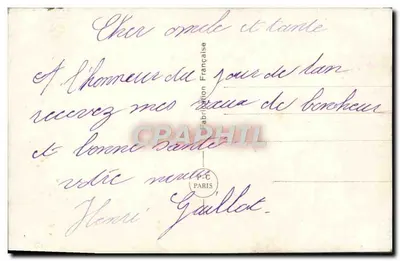 Cher oncle et tante
A l'honneur du jour de l'an
recevez mes vœux de bonheur
et bonne santé
votre neveu
Henri Gaillat.
Fabrication Française
CPARAMA
PARIS